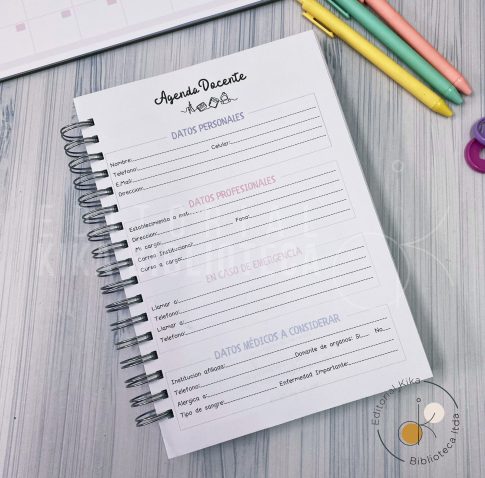 Agenda Docente
DATOS PERSONALES
Nombre:
Telefono: Celular:
E.Mail:
Direccion:
DATOS PROFESIONALES
Establecimiento o inst.
Direccion: Fono:
Mi cargo:
Correo Institucional:
Curso a cargo:
EN CASO DE EMERGENCIA
Llamar a:
Telefono:
Llamar a:
Telefono:
DATOS MÉDICOS A CONSIDERAR
Institucion afiliada: Donante de organos: Si No
Telefono:
Alergica a:
Tipo de sangre: Enfermedad Importante:
Editorial Kika
Biblioteca ltda